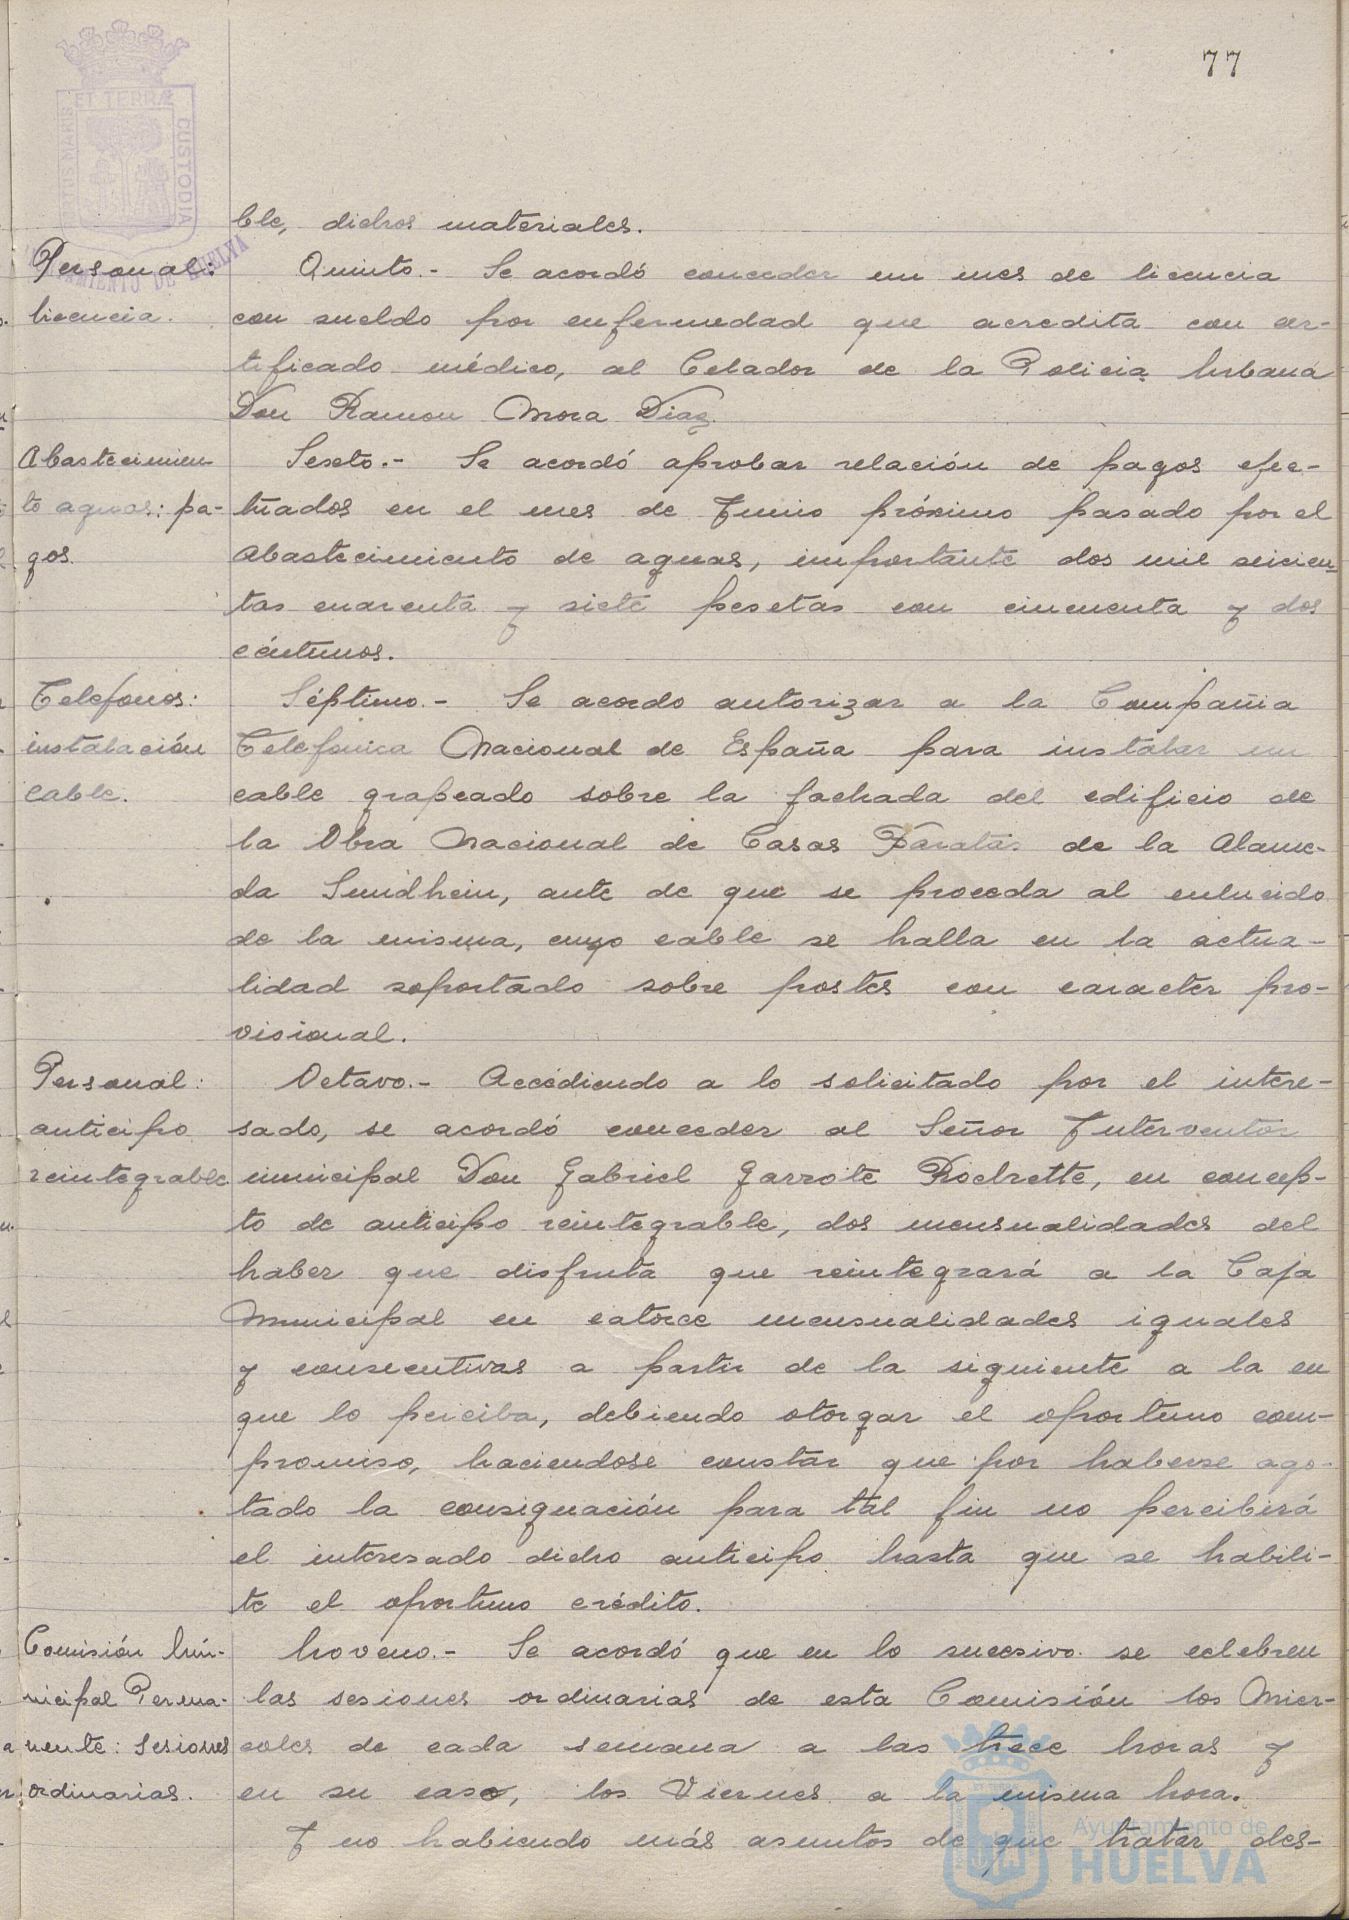 77
PORTUS MARIS ET TERRÆ CUSTODIA
AYUNTAMIENTO DE HUELVA
ble, dichos materiales.
Personal:
licencia.
Quinto.- Se acordó conceder un mes de licencia
con sueldo por enfermedad que acredita con cer-
tificado médico, al Celador de la Policia Urbana
Don Ramon Mora Diaz.
Abastecimien
to aguas: pa-
gos.
Sexto.- Se acordó aprobar relación de pagos efec-
tuados en el mes de Junio próximo pasado por el
Abastecimiento de aguas, importante dos mil seiscien-
tas cuarenta y siete pesetas con cincuenta y dos
céntimos.
Telefonos:
instalación
cable.
Séptimo.- Se acordo autorizar a la Compañia
Telefonica Nacional de España para instalar un
cable grapeado sobre la fachada del edificio de
la Obra Nacional de Casas Baratas de la Alame-
da Sundhein, ante de que se proceda al enlucido
de la misma, cuyo cable se halla en la actua-
lidad soportado sobre postes con caracter pro-
visional.
Personal:
anticipo
reintegrable
Octavo.- Accediendo a lo solicitado por el intere-
sado, se acordó conceder al Señor Interventor
municipal Don Gabriel Garrote Rochette, en concep-
to de anticipo reintegrable, dos mensualidades del
haber que disfruta que reintegrará a la Caja
Municipal en catorce mensualidades iguales
y consecutivas a partir de la siguiente a la en
que lo perciba, debiendo otorgar el oportuno com-
promiso, haciendose constar que por haberse ago-
tado la consignación para tal fin no percibirá
el interesado dicho anticipo hasta que se habili-
te el oportuno crédito.
Comisión Mu-
nicipal Perma-
nente: Sesiones
ordinarias.
Noveno.- Se acordó que en lo sucesivo se celebren
las sesiones ordinarias de esta Comisión los Mier-
coles de cada semana a las trece horas y
en su caso, los Viernes a la misma hora.
Y no habiendo más asuntos de que tratar des-
Ayuntamiento de
HUELVA